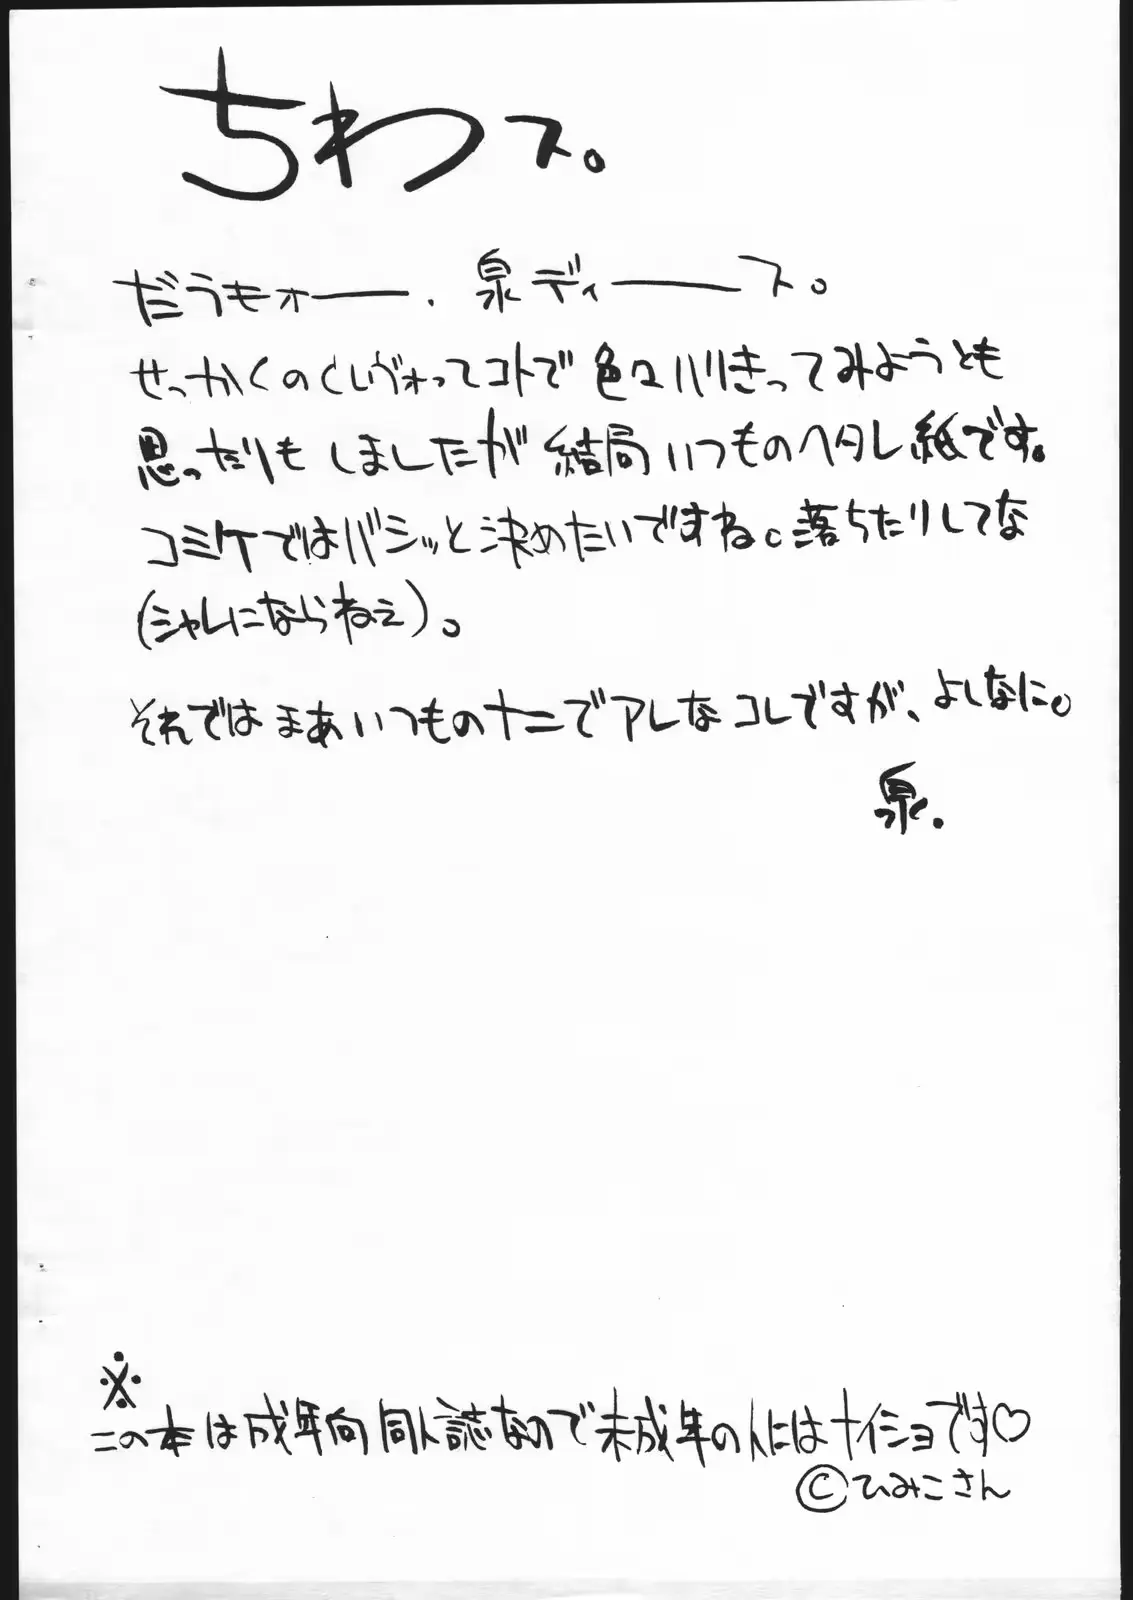 ちわス。
だうもォー、泉ディース。
せっかくのくしヴォってコトで色々ハリきってみようとも
思っだりもしましたが結局いつものヘタレ紙です。
コミケではバシッと決めたいですね。落ちたりしてな
(シャレにならねえ)。
それではまあいつものナニでアレなコレですが、よしなに。
泉.
※
この本は成年向同人誌なので未成年の人にはナイショです♡
©ひみこさん